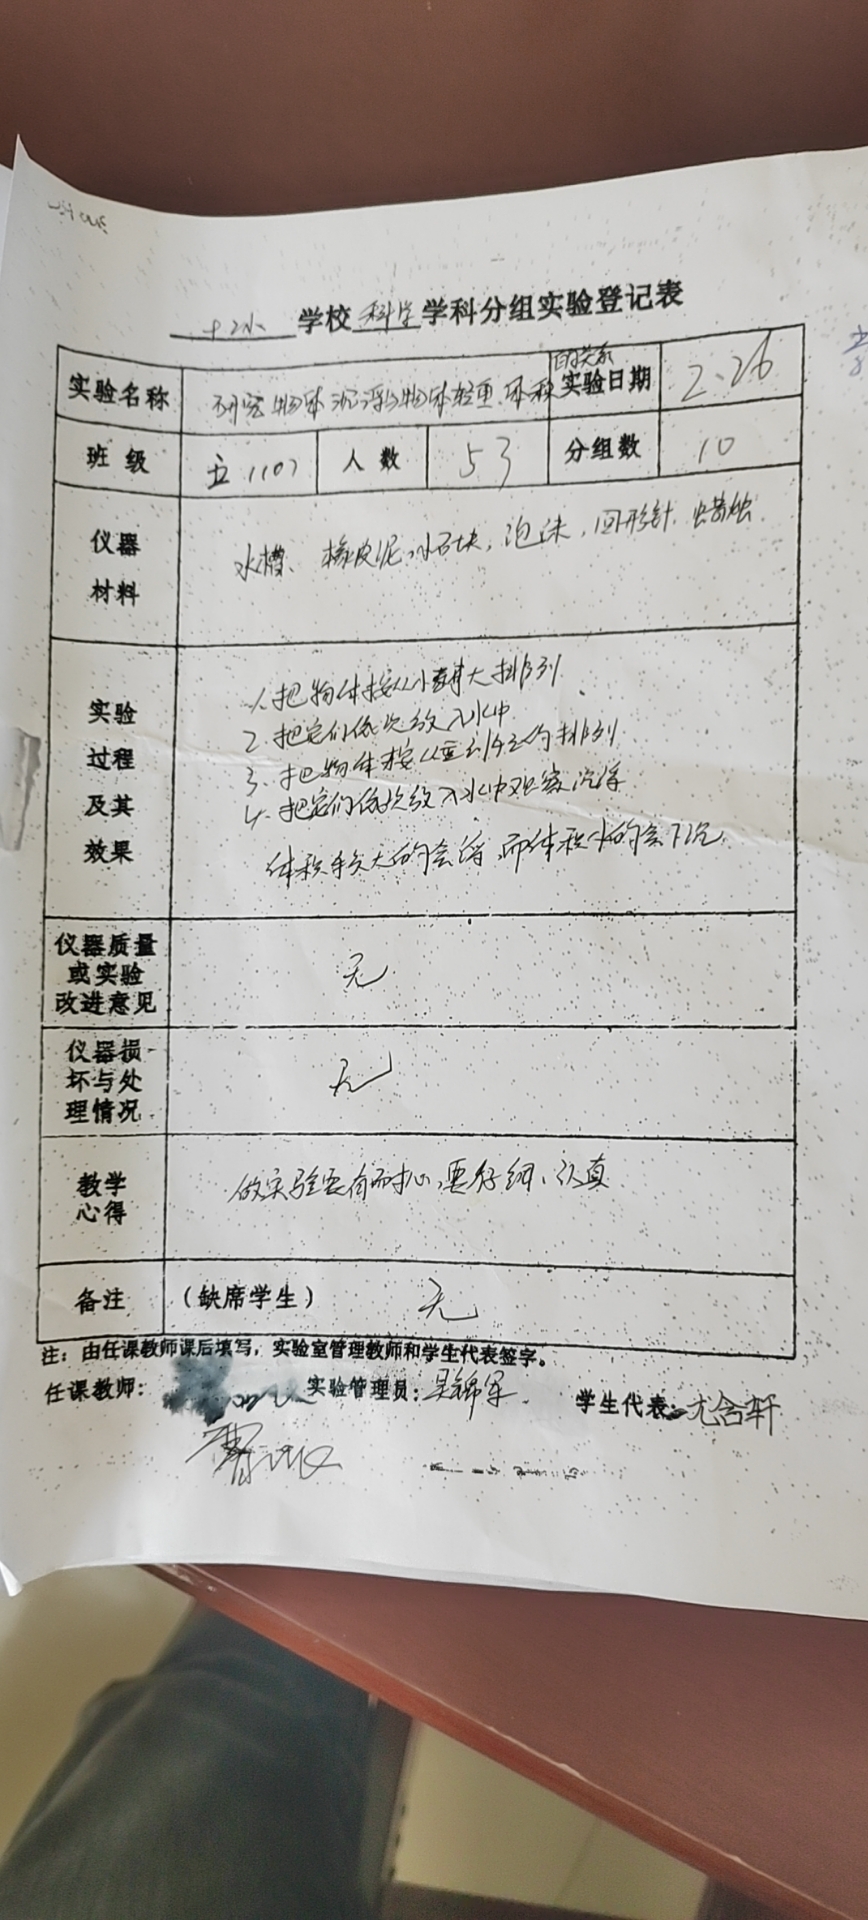 学校 科学 学科分组实验登记表
实验名称 研究物体沉浮与物体轻重、体积的关系 实验日期 2.26
班级 五(10) 人数 53 分组数 10
仪器材料 水槽、橡皮泥、小石块、泡沫、回形针、蜡烛
实验过程及其效果
1、把物体按从小到大排列
2、把它们依次放入水中
3、把物体按从重到轻的排列
4、把它们依次放入水中观察沉浮
体积较大的会浮,而体积小的会下沉
仪器质量或实验改进意见 无
仪器损坏与处理情况 无
教学心得 做实验要有耐心,要仔细、认真
备注 (缺席学生) 无
注:由任课教师课后填写,实验室管理教师和学生代表签字。
任课教师: 实验管理员:吴锦军 学生代表:尤含轩